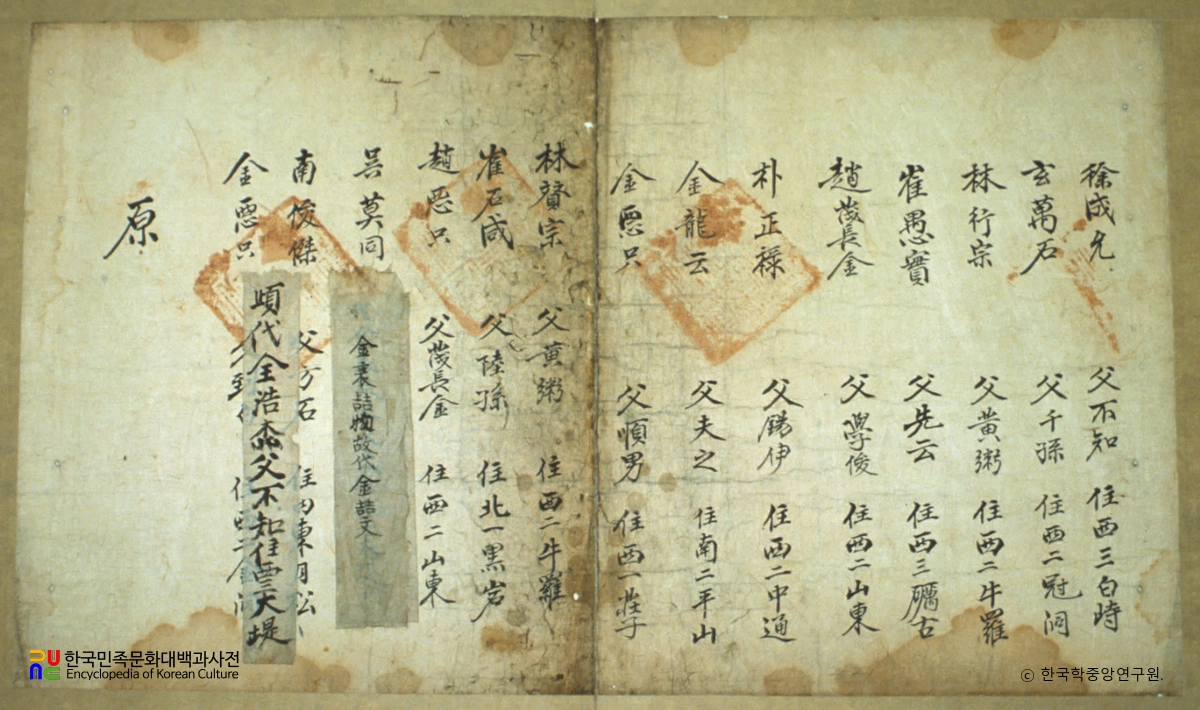 徐成允 父不知 住西三白時
玄萬石 父千孫 住西二冠洞
林行宗 父黃粥 住西二牛羅
崔愚實 父先云 住西三礪古
趙茂長金 父學俊 住西二山東
朴正祿 父錫伊 住西二中通
金龍云 父夫之 住南二平山
金惡只 父順男 住西一莊子
林贇宗 父黃粥 住西二牛羅
崔石成 父陸孫 住北一黑岩
趙惡只 父茂長金 住西二山東
吳莫同
金 喆物故代金喆文
南俊傑 父方石 住內東 松
金惡只
頉代全浩 父不知住西三大堤
原
한국민족문화대백과사전
Encyclopedia of Korean Culture
ⓒ 한국학중앙연구원.